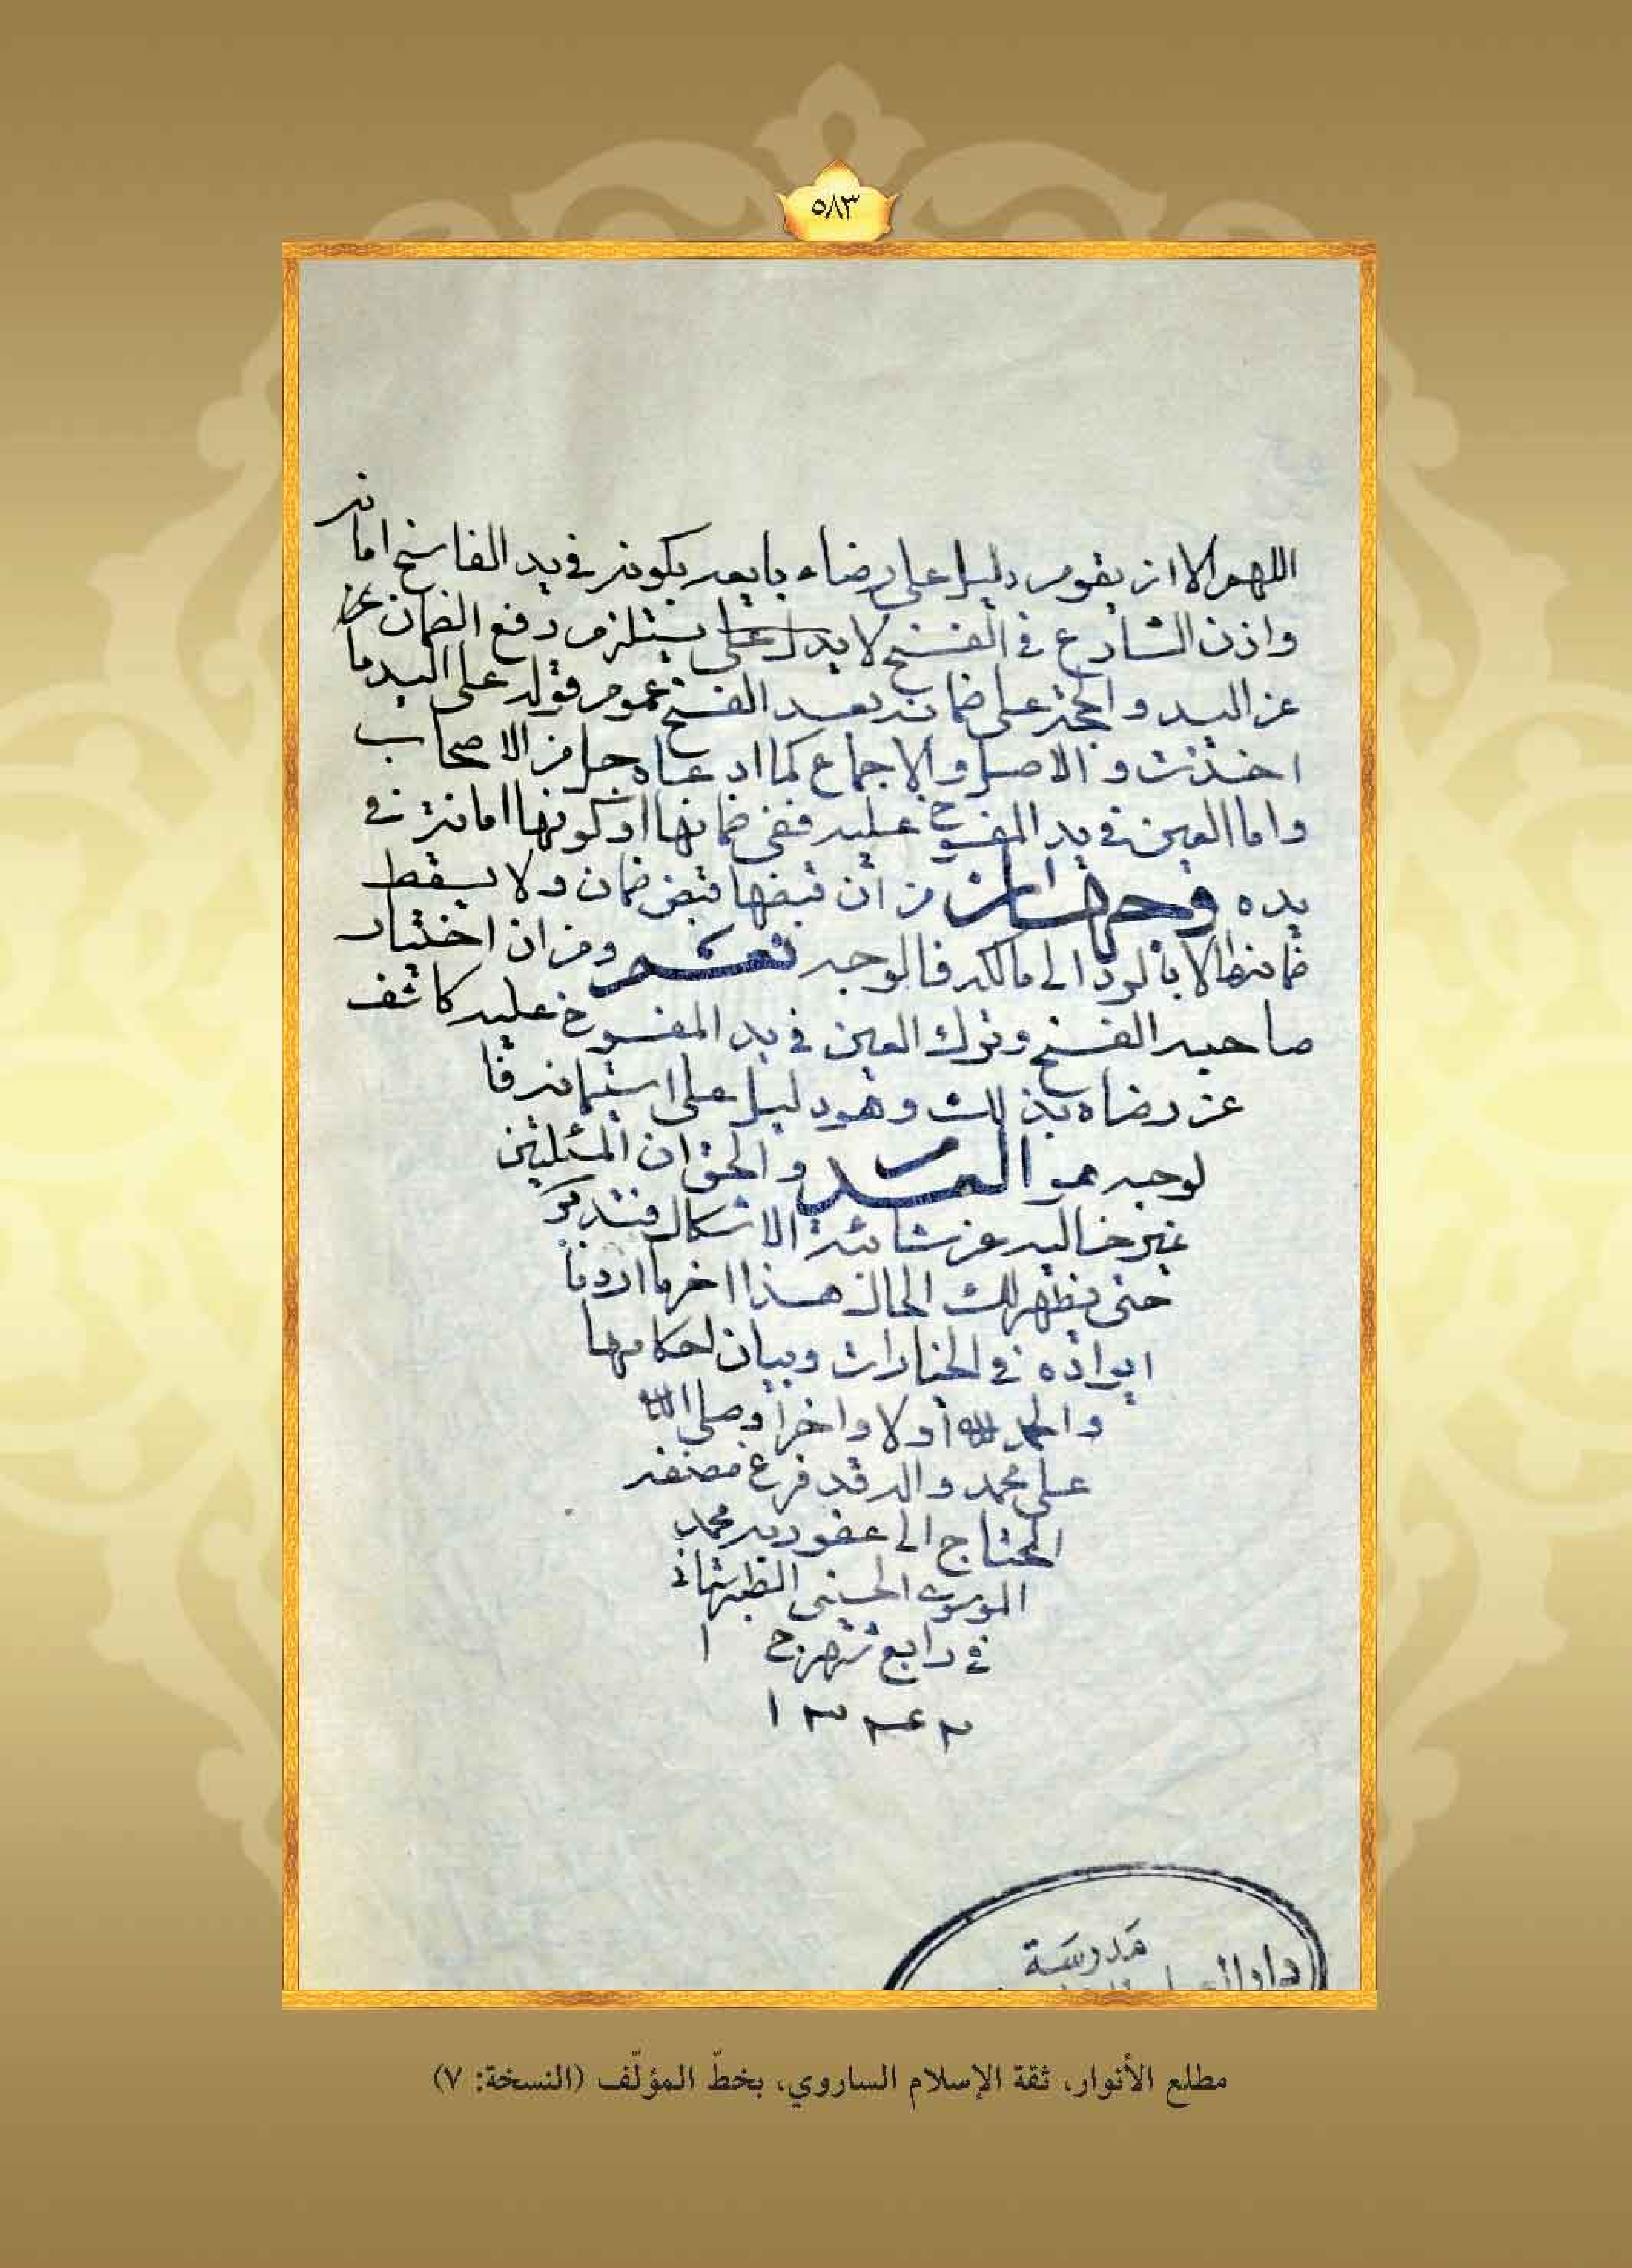 ٥٨٣
اللهم الا ان يقوم دليل على رضاه بكونه في يد الفاسخ امانة
واذن الشارع في الفسخ لا يدل على يستلزم رفع الضمان عن
عن اليد والحجة على ضمانه بعد الفسخ عموم قوله على اليد ما
اخذت والاصل والاجماع كما ادعاه جل من الاصحاب
واما العين في يد المفسوخ عليه ففي ضمانها او كونها امانة في
يده وجهان من ان قبضها قبض ضمان ولا يسقط
ضمانها الا بالرد الى مالكه فالوجه نعم ومن ان اختيار
صاحبه الفسخ وترك العين في يد المفسوخ عليه كاشف
عن رضاه بذلك وهو دليل على استيمانه فا
لوجه هو العدم والحق ان المسئلتين
غير خالية عن شائبة الاشكال فتدبر
حتى يظهر لك الحال هذا اخر ما اردنا
ايراده في الخيارات وبيان احكامها
والحمد لله أولا واخراً وصلى الله
على محمد واله قد فرغ مصنفه
المحتاج الى عفو ربه محمد
الموسوي الحسيني
في رابع شهر ج ١
١٣٤٣
مدرسة
مطلع الأنوار، ثقة الإسلام الساروي، بخطّ المؤلّف (النسخة: ٧)